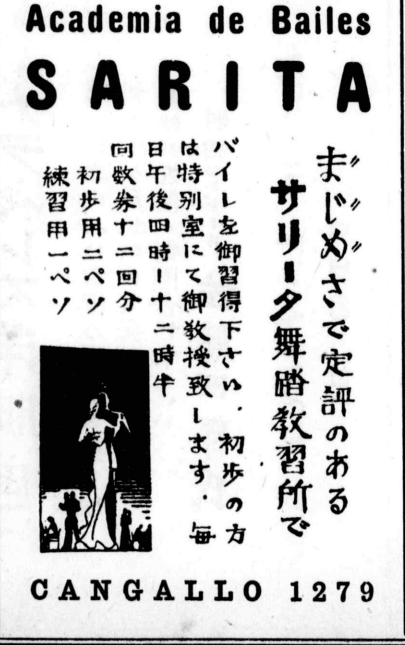 Academia de Bailes
SARITA
まじめさで定評のある
サリータ舞踏教習所で
バイレを御習得下さい．初歩の方
は特別室にて御教授致します．毎
日午後四時ー十二時半
回数券十二回分
初歩用二ペソ
練習用一ペソ
CANGALLO 1279